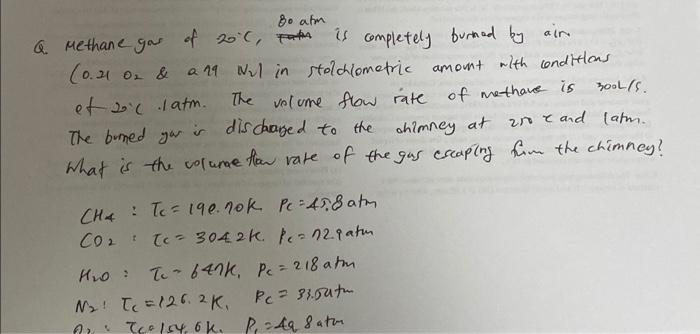 80 atm
Q Methane gas of 20°C, is completely burned by air
(0.21 O2 & 0.79 N2) in stoichiometric amount with conditions
of 20°C .1atm. The volume flow rate of methane is 300L/s.
The burned gas is discharged to the chimney at 250 c and 1atm.
What is the volume flow rate of the gas escaping from the chimney?
CH4 : Tc = 190.70k Pc = 45.8 atm
CO2 : Tc = 304.2K. Pc = 72.9 atm
H2O : Tc = 647K, Pc = 218 atm
N2 : Tc = 126.2K, Pc = 33.5 atm
O2 : Tc = 154.6K. Pc = 49.8 atm